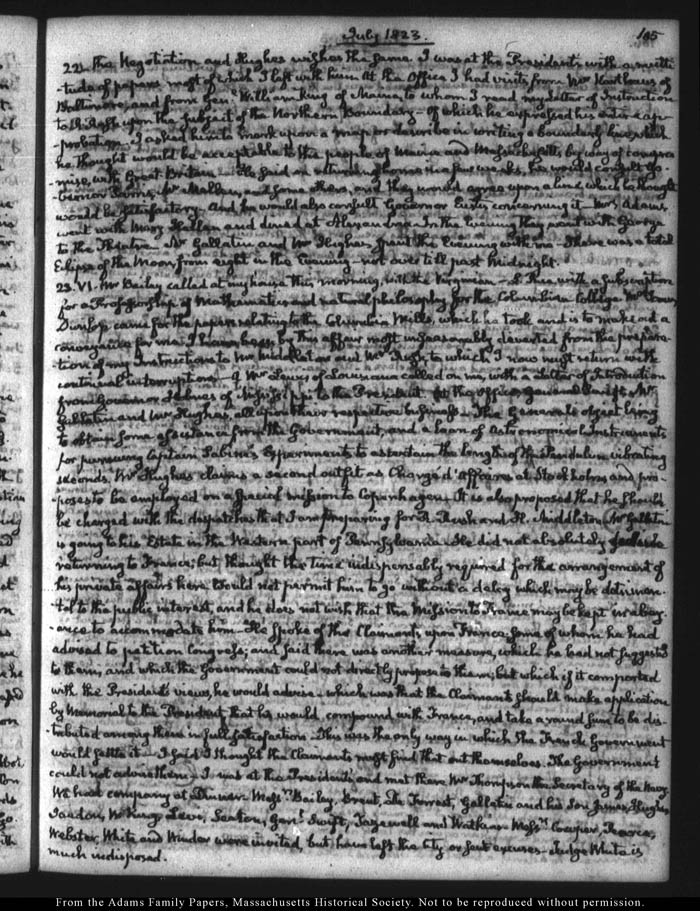 July 1823.
165
22. The Negotiation and Hughes wishes the same. I was at the President's with a multi-
-tude of papers most of which I left with him. At the Office I had visits from Mr
Baltimore, and from Genl William King of Maine, to whom I read my Letter of Instruction
to R. Rush upon the subject of the Northern Boundary. Of which he expressed his entire ap-
-probation. I asked him to mark upon a map or describe in writing a boundary line which
he thought would be acceptable to the people of Maine and Massachusetts by way of compro-
mise, with Great Britain. He said on returning home in a few weeks, he would consult Go-
-vernor and some others, and they would agree upon a line which he thought
would be satisfactory. And he would also consult Governor Eustis concerning it. Mrs Adams
went with Mary Hellen and dined at Alexandria. In the Evening they went with George
to the Theatre. Mr Gallatin and Mr Hughes, spent the Evening with me. There was a total
Eclipse of the Moon from eight in the Evening not over till past Midnight.
23. VI. Mr Bailey called at my house this morning, with the Virginian with a subscription
for a Professorship of Mathematics and natural philosophy for the Columbian College. Mr
Dunlop came for the papers relating to the Columbia Mills, which he took and is to make out a
conveyance for me. I have been by this affair most unseasonably diverted from the prepara-
-tion of my Instructions to Mr Middleton and Mr Rush, to which I now must return with
continual interruptions. Mr Lewis of Louisiana called on me, with a Letter of Introduction
from Governor Holmes of Mississippi to the President. At the office, General Swift, Mr
Gallatin and Mr Hughes, all upon their respective business. The General's object being
to obtain some assistance from the Government, and a loan of Astronomical Instruments
for pursuing Captain Sabine's Experiments to ascertain the length of the Pendulum vibrating
seconds. Mr Hughes claims a second outfit as Chargé d'Affaires at Stockholm, and pro-
-poses to be employed on a special mission to Copenhagen. It is also proposed that he should
be charged with the dispatches that I am preparing for R. Rush and H. Middleton. Mr Gallatin
is going to his Estate in the Western part of Pennsylvania. He did not absolutely decline
returning to France; but thought the time indispensably required for the arrangement of
his private affairs here would not permit him to go without a delay which may be detrimen-
tal to the public interest, and he does not wish that the Mission to France may be kept in abey-
-ance to accommodate him. He spoke of the Claimants upon France, some of whom he had
advised to petition Congress; and said there was another measure, which he had not suggested
to them, and which the Government could not directly propose to them, but which if it comported
with the President's views, he would advise. which was that the Claimants should make application
by Memorial to the President, that he would compound with France, and take a round sum to be dis-
-tributed among them in full satisfaction. This was the only way in which the French Government
would settle it. I said I thought the Claimants must find that out themselves. The Government
could not advise them. I was at the President's and met there Mr Thompson the Secretary of the Navy.
We had company at Dinner. Messrs Bailey, Brent, De Forrest, Gallatin and his Son James, Hughes,
Jaudon, W. King, Seaton, Genl Swift, Tazewell and Watkins. Messrs Cowper, Pearce,
Webster, White and Winder were invited, but have left the City or sent excuses. Judge White is
much indisposed.
From the Adams Family Papers, Massachusetts Historical Society. Not to be reproduced without permission.